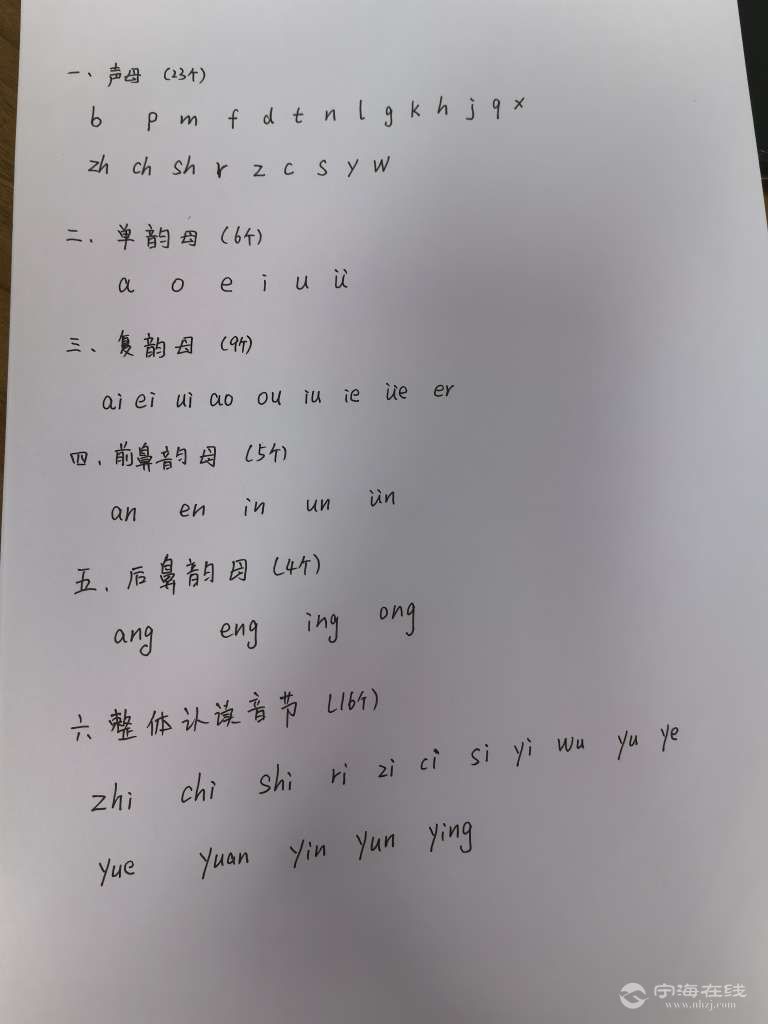 一、声母 (23个)
b p m f d t n l g k h j q x
zh ch sh r z c s y w
二、单韵母 (6个)
a o e i u ü
三、复韵母 (9个)
ai ei ui ao ou iu ie üe er
四、前鼻韵母 (5个)
an en in un ün
五、后鼻韵母 (4个)
ang eng ing ong
六 整体认读音节 (16个)
zhi chi shi ri zi ci si yi wu yu ye
yue yuan yin yun ying
宁海在线
www.nhzj.com